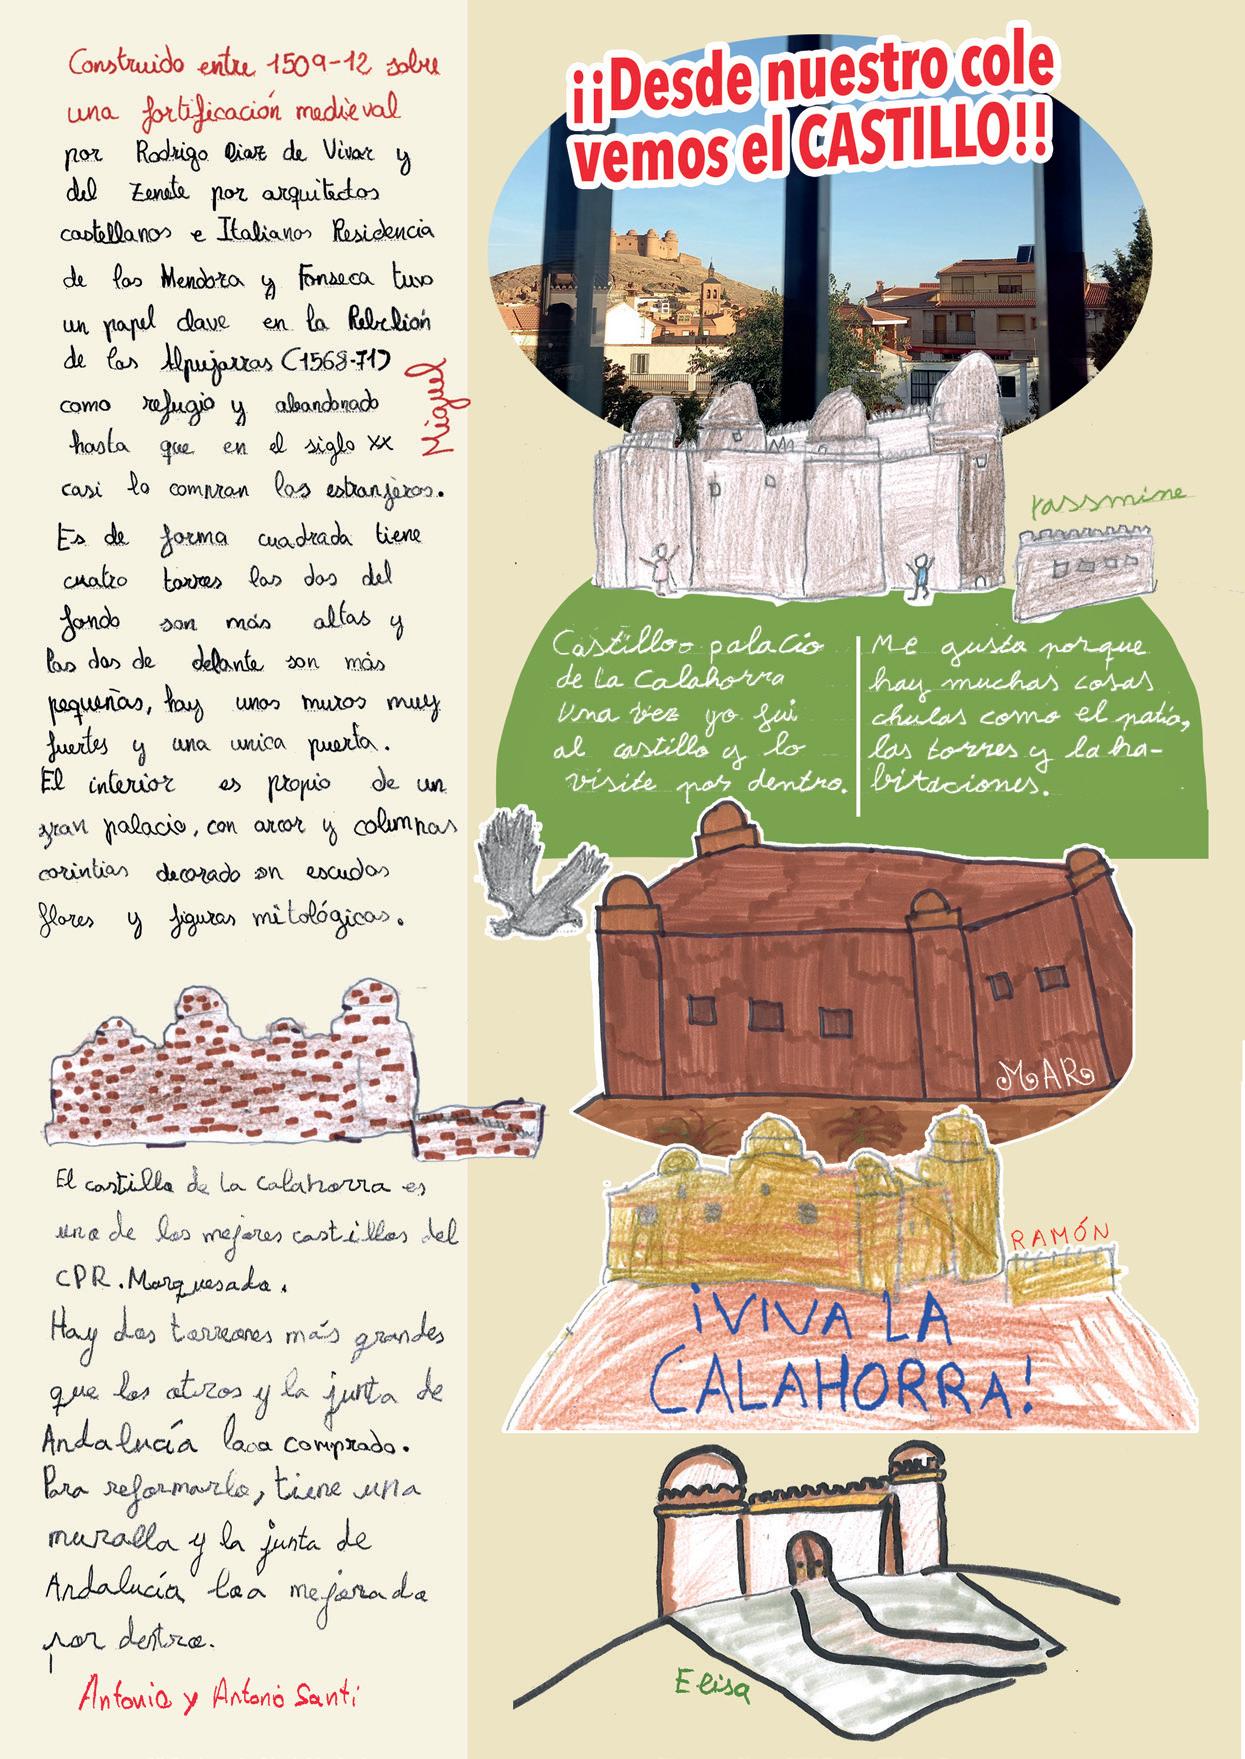 Construido entre 1509-12 sobre
una fortificación medieval
por Rodrigo Diaz de Vivar y
del Zenete por arquitectos
castellanos e Italianos Residencia
de los Mendoza y Fonseca tuvo
un papel clave en la Rebelión
de las Alpujarras (1568-71)
como refugio y abandonado
hasta que en el siglo XX
casi lo compran los estranjeros.
Es de forma cuadrada tiene
cuatro torres las dos del
fondo son más altas y
las dos de delante son más
pequeñas, hay unos muros muy
fuertes y una unica puerta.
El interior es propio de un
gran palacio, con arcor y columnas
corintias decorado en escudos
flores y figuras mitológicas.
Miguel
El castillo de La Calahorra es
uno de los mejores castillos del
CPR. Marquesado.
Hay dos torreones más grandes
que los otros y la junta de
Andalucía comprado.
Para reformarlo, tiene una
muralla y la junta de
Andalucía loa mejorado
por dentro.
Antonio y Antonio Santi
¡¡Desde nuestro cole
vemos el CASTILLO!!
Yassmine
Castillo palacio
de La Calahorra
Una vez yo fui
al castillo y lo
visite por dentro.
Me gusta porque
hay muchas cosas
chulas como el patio,
las torres y la ha-
bitaciones.
MAR
RAMÓN
¡VIVA LA
CALAHORRA!
Elisa